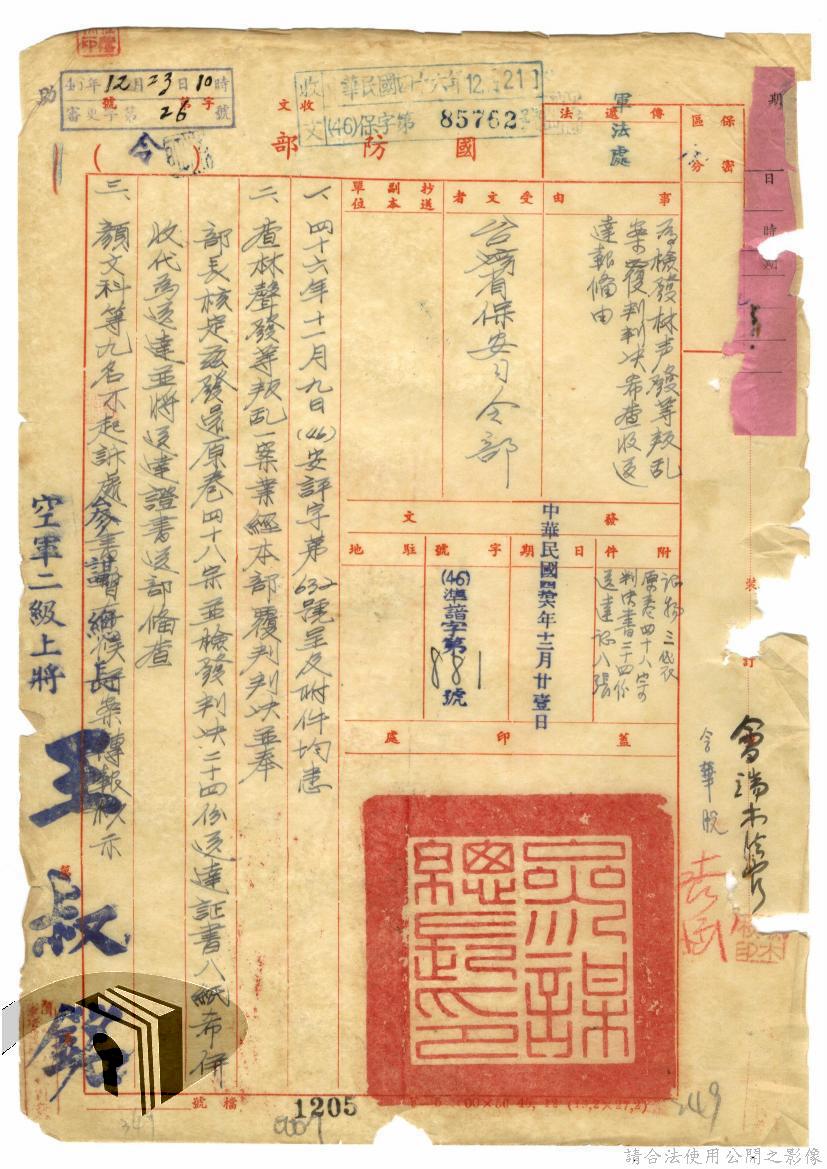 46年12月23日10時
審更字第26號
收文 華民國四十六年12.21
(46)保字第85762號
助
國防部
(令)
軍法處
傳遞法
保密區分
期
日
時
期
事由
為檢發林声發等叛乱
案覆判判决希查收送
達報備由
受文者
台灣省保安司令部
抄送副本單位
附件
証物三袋
原卷四十八宗
判决書二十四份
送達証八張
發文
日期
中華民國四十六年十二月廿壹日
字號
(46)準諳字第881號
駐地
蓋印處
參謀總長印
一、四十六年十一月九日(46)安評字第632號呈及附件均悉
二、查林聲發等叛乱一案業經本部覆判判决並奉
部長核定茲發還原卷四十八宗並檢發判决二十四份送達証書八紙希併
收代為送達並將送達證書送部備查
三、顏文科等九名不起訴處
參謀總長
空軍二級上將
王叔銘
裝
訂
檔號
1205
349
349
請合法使用公開之影像